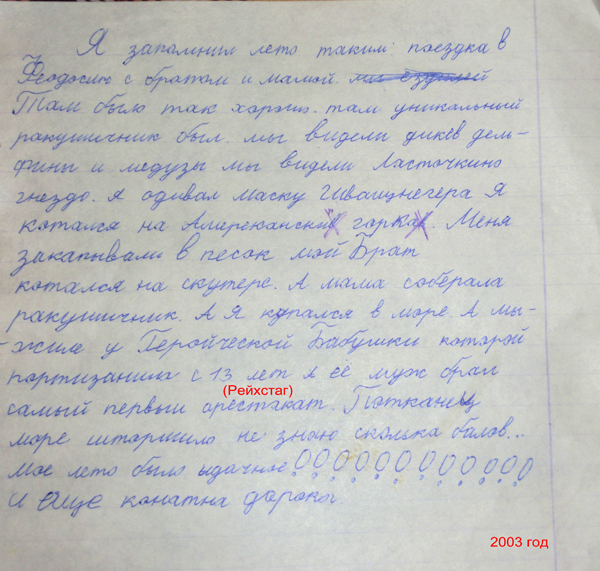 Я запомнил лето таким: поездка в
Феодосию с братом и мамой.
Там было так хорошо. там уникальный
ракушичник был. мы видели дикев дем-
фины и медузы мы видели Ласточкино
гнездо. я одивал маску Шваицнегера Я
котался на Амереканский горках. Меня
закапывали в песок мой Брат
котался на скутерс. А мама соберала
ракушичник. А Я купался в море. А мы-
-жиле у Геройческой Бабушки которой
портизанила с 13 лет А её муж брал
(Рейхстаг)
самый первый орестакат. Потканец
море штормило не знаю сколька балов...
мое лето было удачное!!!!!!!!!!!!
и еще конатна дарока.
2003 год